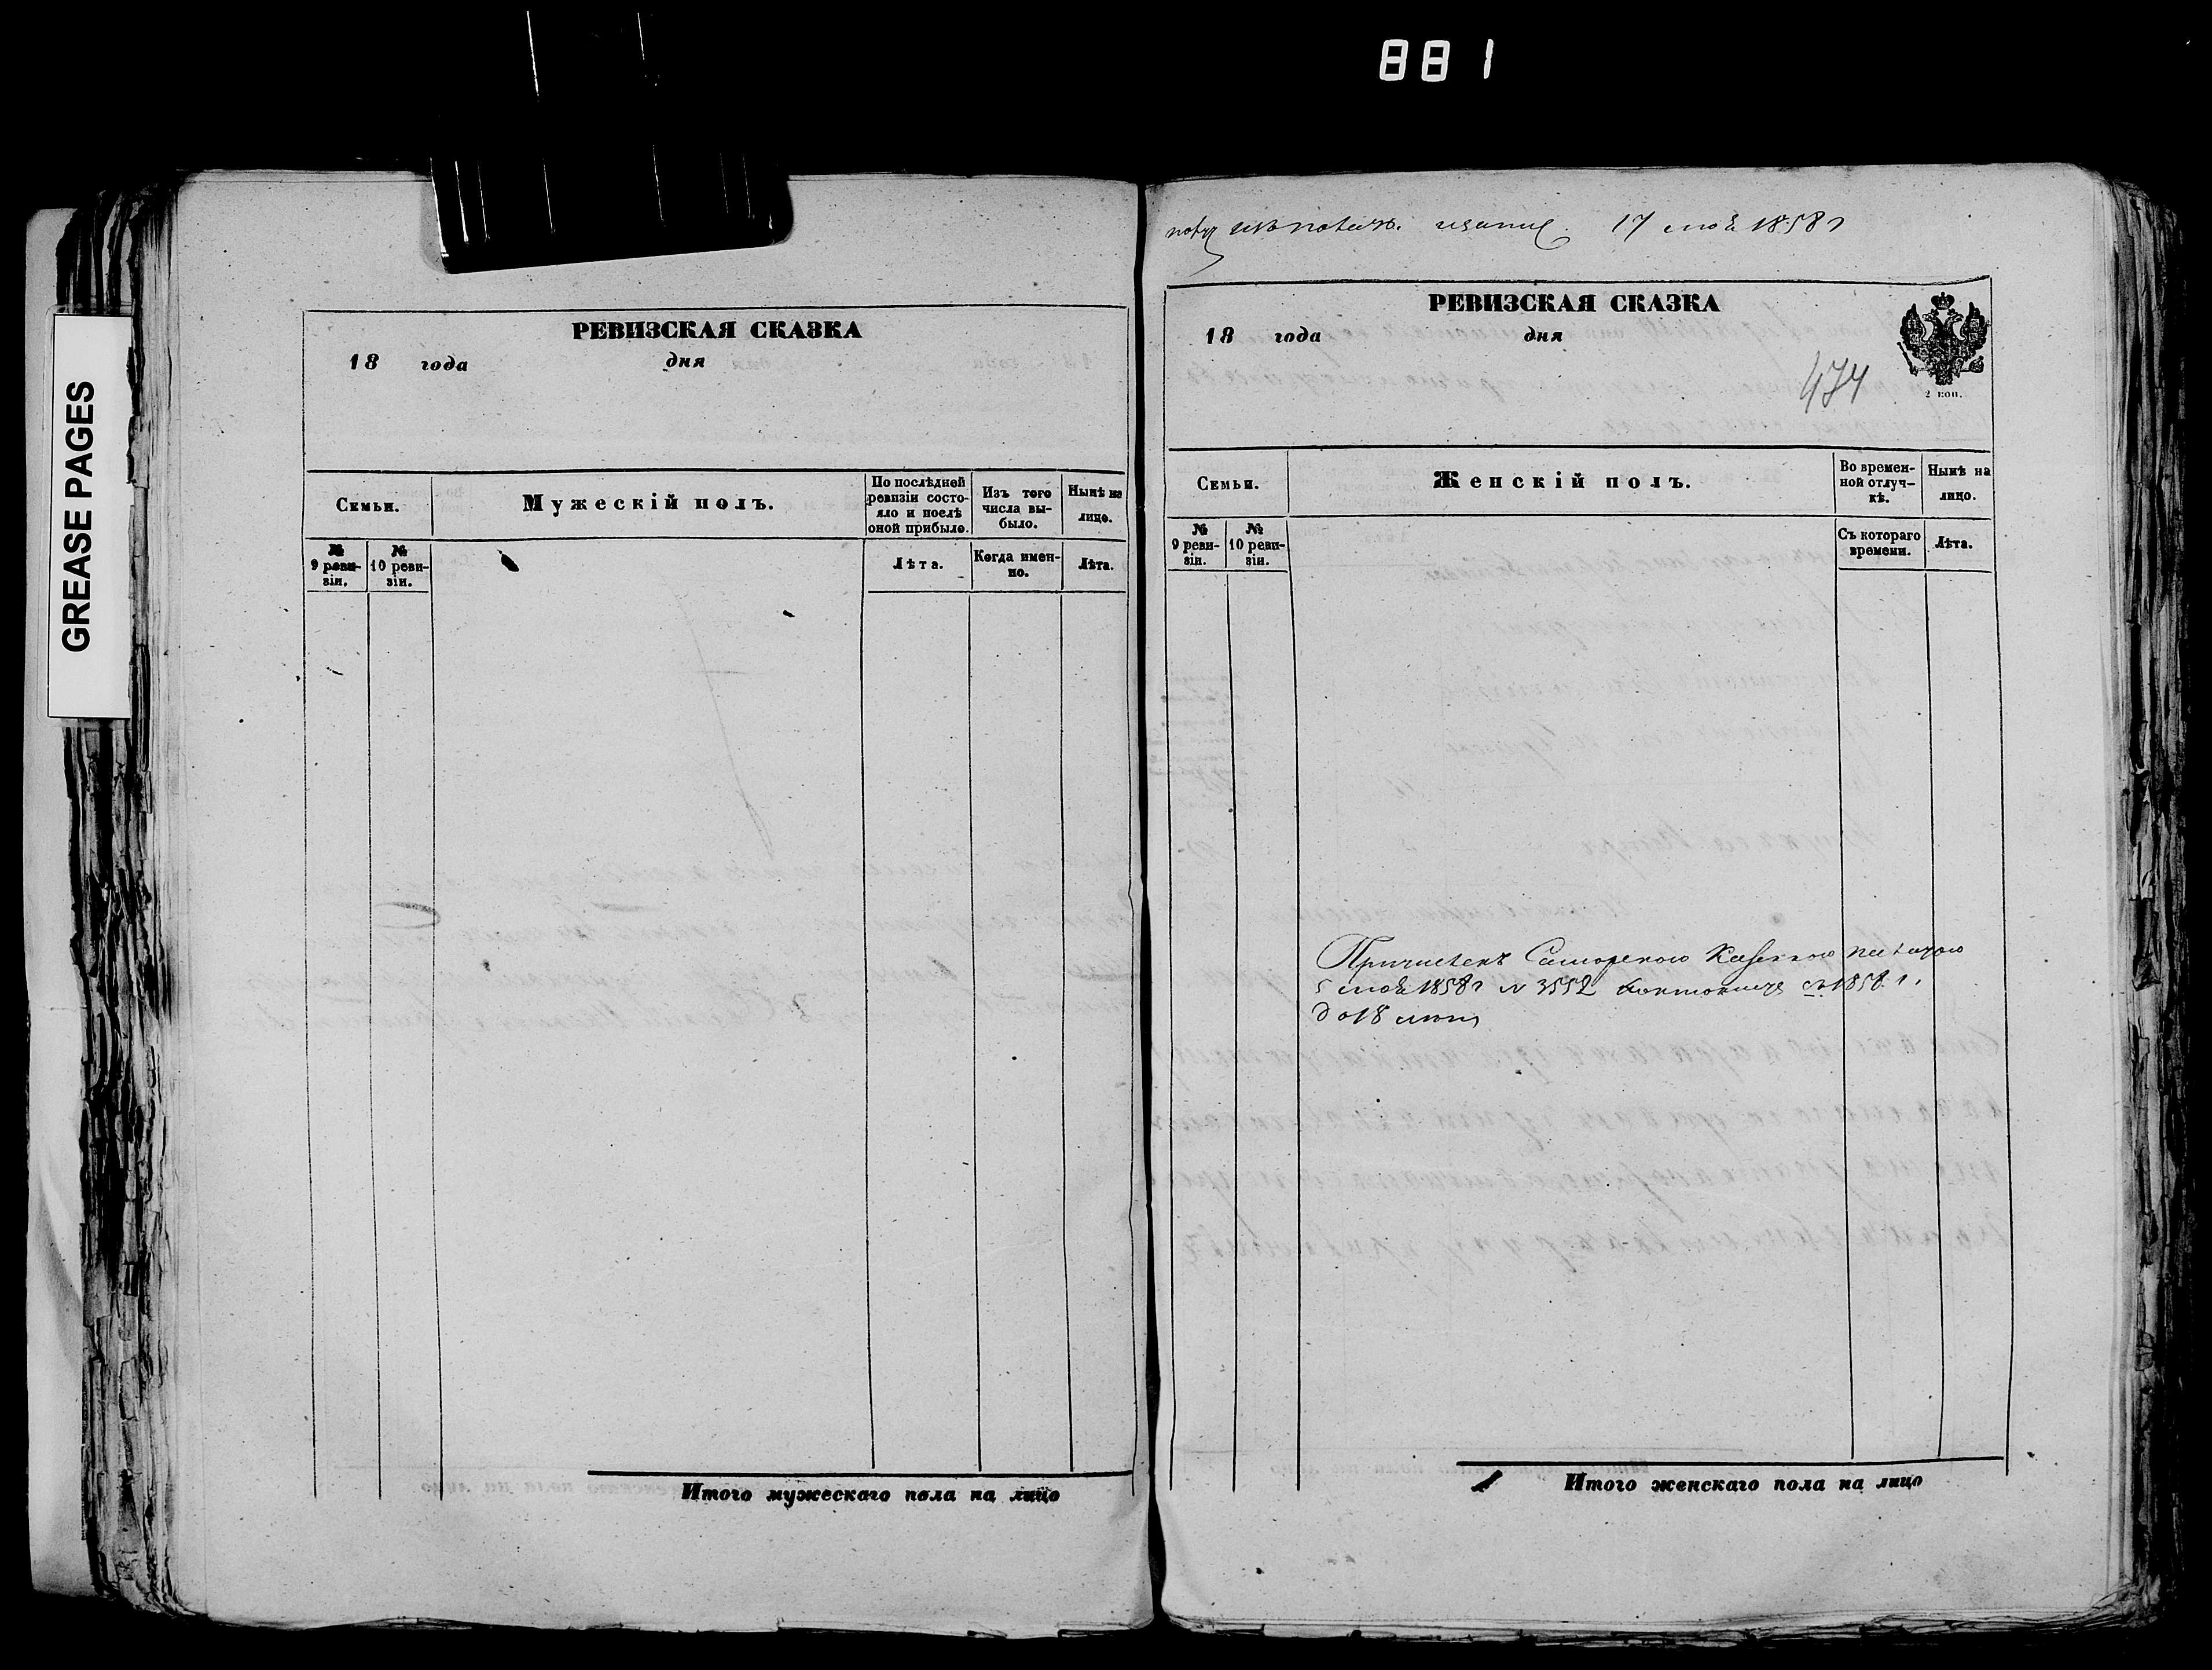 881
GREASE PAGES
РЕВИЗСКАЯ СКАЗКА
18 года дня
Семьи.
Мужескій полъ.
По послѣдней ревизіи состо-
яло и послѣ
оной прибыло.
Изъ того
числа вы-
было.
Нынѣ на
лицо.
№
9 реви-
зіи.
№
10 реви-
зіи.
Лѣта.
Когда имен-
но.
Лѣта.
Итого мужескаго пола на лицо
17 1858 г
РЕВИЗСКАЯ СКАЗКА
18 года дня
474
2 коп.
Семьи.
Женскій полъ.
Во времен-
ной отлуч-
кѣ.
Нынѣ на
лицо.
№
9 реви-
зіи.
№
10 реви-
зіи.
Съ котораго
времени.
Лѣта.
Причисленъ Самарскою Казенною палатою
5 1858 г № 3552 съ 1858 г.
до 18
Итого женскаго пола на лицо